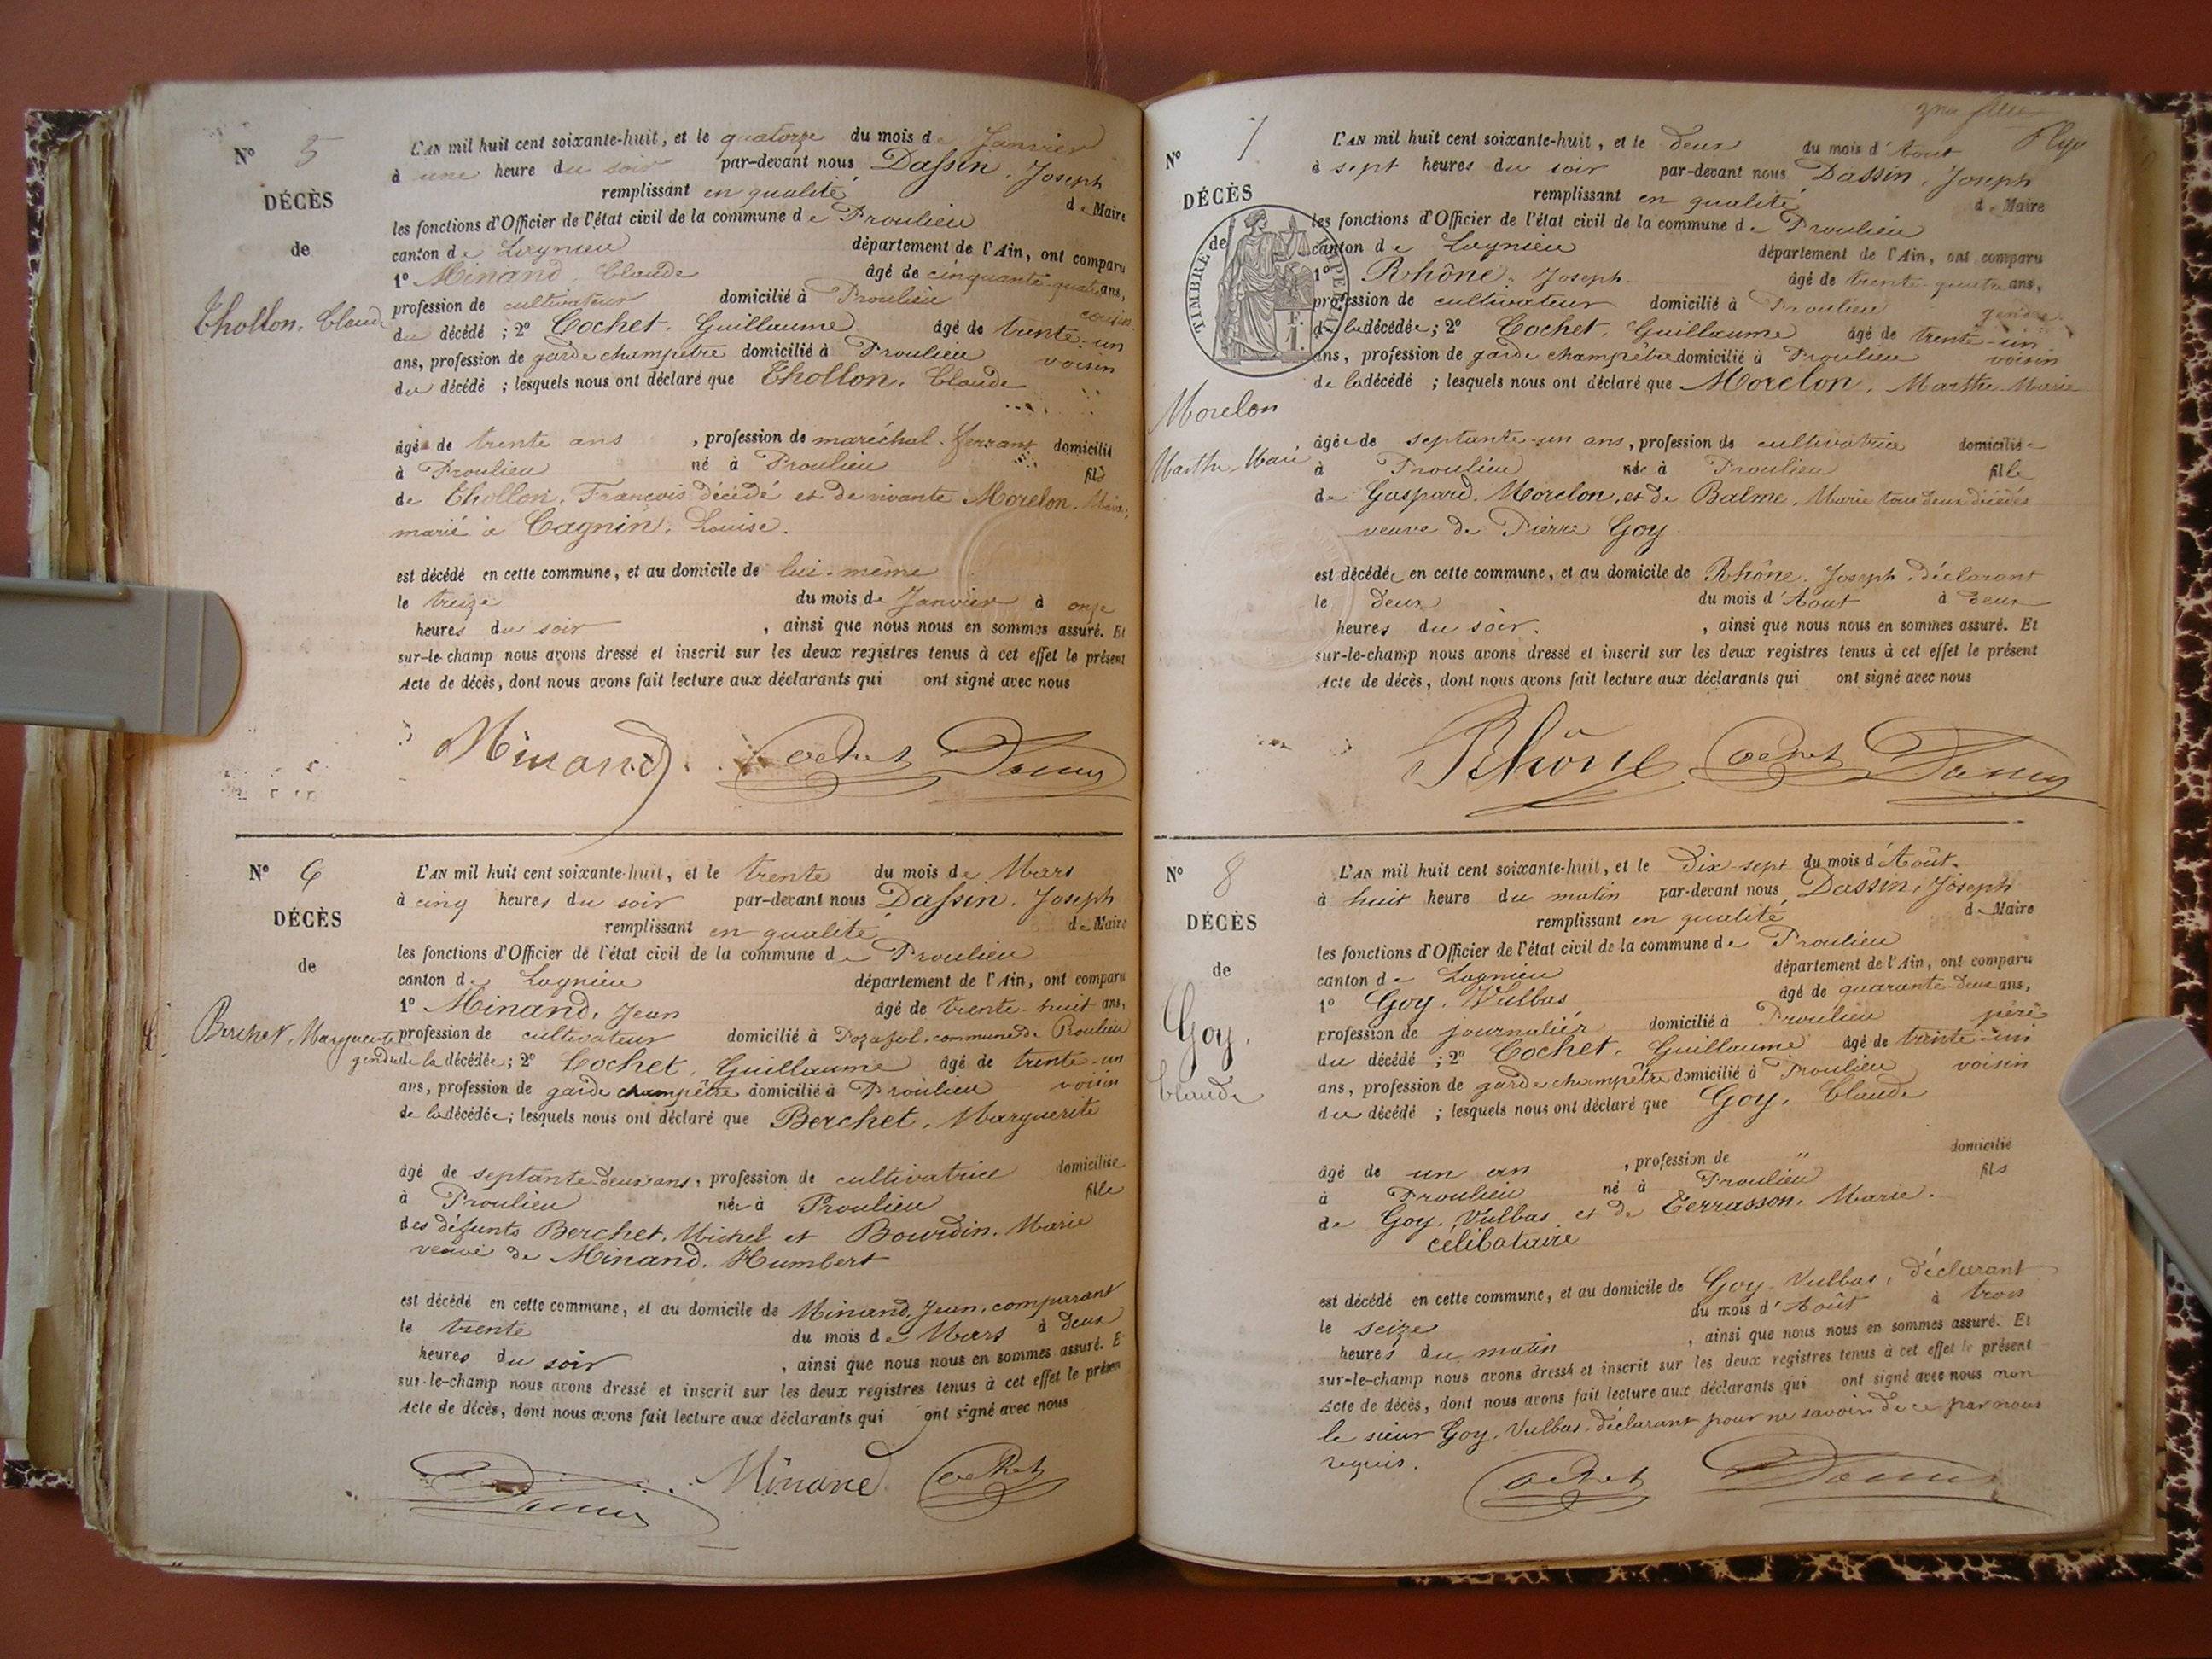 N° 5
DÉCÈS
de
Thollon, Claude
L'AN mil huit cent soixante-huit, et le quatorze du mois de Janvier
à une heure du soir par-devant nous Dassin, Joseph
remplissant en qualité de Maire
les fonctions d'Officier de l'état civil de la commune de Proulieu
canton de Lagnieu département de l'Ain, ont comparu
1° Minand, Claude âgé de cinquante-quatre ans,
profession de cultivateur domicilié à Proulieu cousin
du décédé ; 2° Cochet, Guillaume âgé de trente-un
ans, profession de garde champêtre domicilié à Proulieu voisin
du décédé ; lesquels nous ont déclaré que Thollon, Claude
âgé de trente ans , profession de maréchal-ferrant domicilié
à Proulieu né à Proulieu fils
de Thollon, François décédé et de vivante Morelon, Marie,
marié à Cagnin, Louise.
est décédé en cette commune, et au domicile de lui-même
le treize du mois de Janvier à onze
heures du soir , ainsi que nous nous en sommes assuré. Et
sur-le-champ nous avons dressé et inscrit sur les deux registres tenus à cet effet le présent
Acte de décès, dont nous avons fait lecture aux déclarants qui ont signé avec nous
Minand Cochet Dassin
N° 6
DÉCÈS
de
Berchet, Marguerite
L'AN mil huit cent soixante-huit, et le trente du mois de Mars
à cinq heures du soir par-devant nous Dassin, Joseph
remplissant en qualité de Maire
les fonctions d'Officier de l'état civil de la commune de Proulieu
canton de Lagnieu département de l'Ain, ont comparu
1° Minand, Jean âgé de trente-huit ans,
profession de cultivateur domicilié à Pozafol, commune de Proulieu
gendre de la décédée ; 2° Cochet, Guillaume âgé de trente-un
ans, profession de garde champêtre domicilié à Proulieu voisin
de la décédée ; lesquels nous ont déclaré que Berchet, Marguerite
âgé de septante-deux ans, profession de cultivatrice domiciliée
à Proulieu née à Proulieu fille
des défunts Berchet, Michel et Bourdin, Marie
veuve de Minand, Humbert
est décédé en cette commune, et au domicile de Minand, Jean, comparant
le trente du mois de Mars à deux
heures du soir , ainsi que nous nous en sommes assuré. E
sur-le-champ nous avons dressé et inscrit sur les deux registres tenus à cet effet le présen
Acte de décès, dont nous avons fait lecture aux déclarants qui ont signé avec nous
Dassin Minand Cochet
N° 7
DÉCÈS
de
TIMBRE IMPERIAL
Morelon
Marthe-Marie
L'AN mil huit cent soixante-huit, et le deux du mois d'Aout
à sept heures du soir par-devant nous Dassin, Joseph
remplissant en qualité de Maire
les fonctions d'Officier de l'état civil de la commune de Proulieu
canton de Lagnieu département de l'Ain, ont comparu
1° Rhône, Joseph âgé de trente-quatre ans,
profession de cultivateur domicilié à Proulieu gendre
de la décédée ; 2° Cochet, Guillaume âgé de trente-un
ans, profession de garde champêtre domicilié à Proulieu voisin
de la décédé ; lesquels nous ont déclaré que Morelon, Marthe-Marie
âgée de septante-un ans, profession de cultivatrice domiciliée
à Proulieu née à Proulieu fille
de Gaspard Morelon, et de Balme, Marie tous deux décédés
veuve de Pierre Goy.
est décédée en cette commune, et au domicile de Rhône, Joseph, déclarant
le deux du mois d'Aout à deux
heures du soir. , ainsi que nous nous en sommes assuré. Et
sur-le-champ nous avons dressé et inscrit sur les deux registres tenus à cet effet le présent
Acte de décès, dont nous avons fait lecture aux déclarants qui ont signé avec nous
Rhône Cochet Dassin
N° 8
DÉCÈS
de
Goy,
Claude
L'AN mil huit cent soixante-huit, et le Dix-sept du mois d'Août
à huit heure du matin par-devant nous Dassin, Joseph
remplissant en qualité de Maire
les fonctions d'Officier de l'état civil de la commune de Proulieu
canton de Lagnieu département de l'Ain, ont comparu
1° Goy, Vulbas âgé de quarante-deux ans,
profession de journaliér domicilié à Proulieu père
du décédé ; 2° Cochet, Guillaume âgé de trente-un
ans, profession de garde champêtre domicilié à Proulieu voisin
du décédé ; lesquels nous ont déclaré que Goy, Claude
âgé de un an , profession de " domicilié
à Proulieu né à Proulieu fils
de Goy, Vulbas et de Terrasson, Marie.
célibataire
est décédé en cette commune, et au domicile de Goy, Vulbas, déclarant
le seize du mois d'Août à trois
heures du matin , ainsi que nous nous en sommes assuré. Et
sur-le-champ nous avons dressé et inscrit sur les deux registres tenus à cet effet le présent
Acte de décès, dont nous avons fait lecture aux déclarants qui ont signé avec nous non
le sieur Goy, Vulbas, déclarant pour ne savoir de ce par nous
requis.
Cochet Dassin